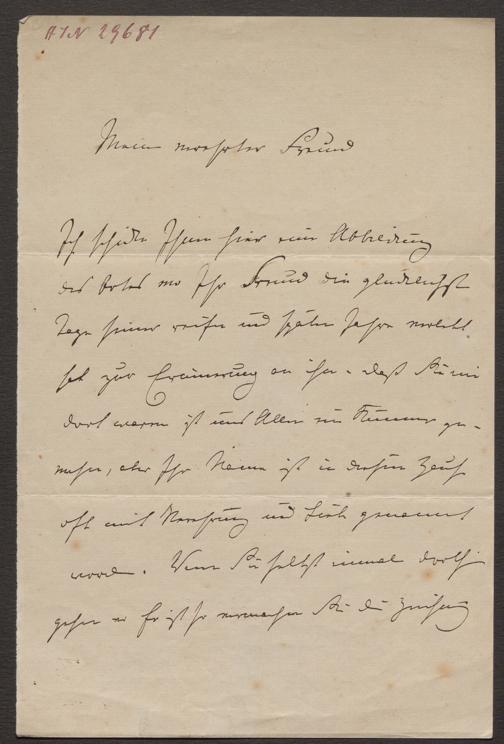 AIN 29681
Mein verehrter Freund
Ich schicke Ihnen hier eine Abbildung
des Ortes wo Ihr Freund die glücklichsten
Tage seiner reifen und späten Jahre verlebt
hat zur Erinnerung an ihn – daß Sie nie
dort waren ist uns Allen ein Kummer ge-
wesen, aber Ihr Name ist in diesem Haus
oft mit Verehrung und Liebe genannt
worden. Wenn Sie selbst einmal dorthin
gehen wo er ist so vermachen Sie die Zeichnung